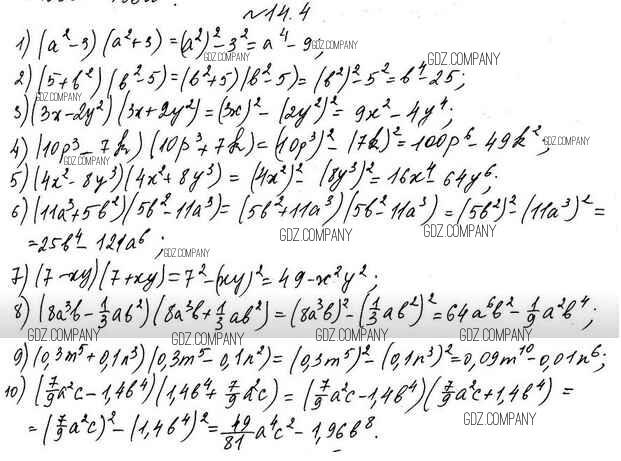 №14.4
1) (a²-3)(a²+3)=(a²)²-3²=a⁴-9;
GDZ.COMPANY
GDZ.COMPANY
GDZ.COMPANY
2) (5+b²)(b²-5)=(b²+5)(b²-5)=(b²)²-5²=b⁴-25;
GDZ.COMPANY
3) (3x-2y²)(3x+2y²)=(3x)²-(2y²)²=9x²-4y⁴;
4) (10p³-7k)(10p³+7k)=(10p³)²-(7k)²=100p⁶-49k²;
GDZ.COMPANY
GDZ.COMPANY
5) (4x²-8y³)(4x²+8y³)=(4x²)²-(8y³)²=16x⁴-64y⁶;
6) (11a³+5b²)(5b²-11a³)=(5b²+11a³)(5b²-11a³)=(5b²)²-(11a³)²=
GDZ.COMPANY
GDZ.COMPANY
=25b⁴-121a⁶;
GDZ.COMPANY
7) (7-xy)(7+xy)=7²-(xy)²=49-x²y²;
8) (8a³b-1/3ab²)(8a³b+1/3ab²)=(8a³b)²-(1/3ab²)²=64a⁶b²-1/9a²b⁴;
GDZ.COMPANY
GDZ.COMPANY
GDZ.COMPANY
GDZ.COMPANY
9) (0,3m⁵+0,1n³)(0,3m⁵-0,1n²)=(0,3m⁵)²-(0,1n³)²=0,09m¹⁰-0,01n⁶;
10) (7/9a²c-1,4b⁴)(1,4b⁴+7/9a²c)=(7/9a²c-1,4b⁴)(7/9a²c+1,4b⁴)=
GDZ.COMPANY
=(7/9a²c)²-(1,4b⁴)²=49/81a⁴c²-1,96b⁸.